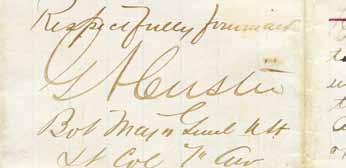 Respectfully forwarded
G A Custer
Bvt Maj Genl USA
Lt Col 7" Cav